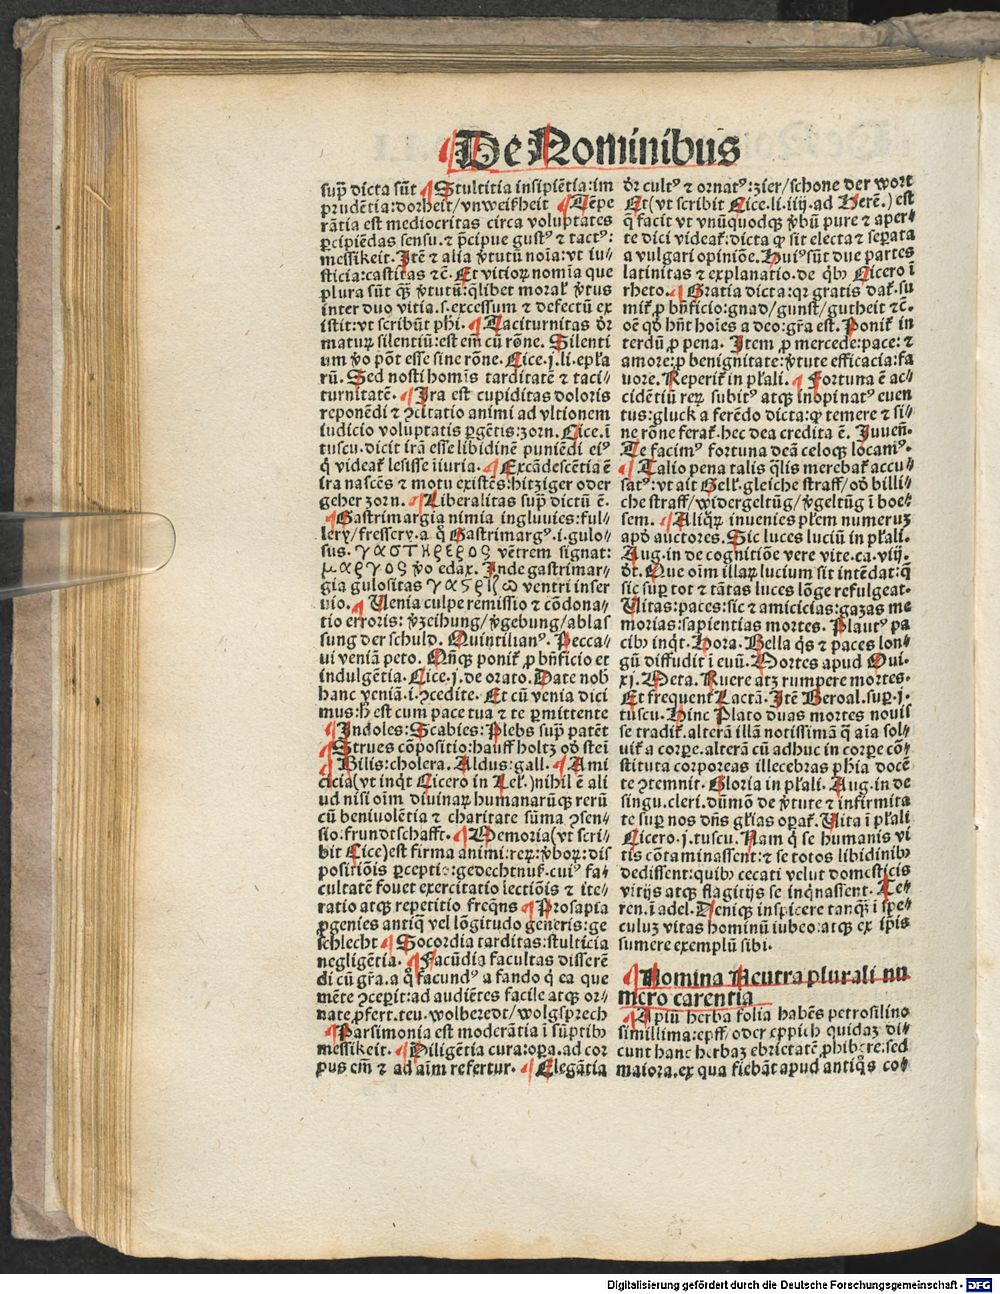 De Nominibus
sup̄ dicta sūt ¶ Stultitia insipiētia:im
prudētia:dorheit/vnweißheit ¶ Tēpe
rātia est mediocritas circa voluptates
ꝑcipiēdas sensu.⁊ p̄cipue gustꝰ ⁊ tactꝰ:
messikeit. Itē ⁊ alia v̄tutū noīa:vt iu⸗
sticia:castitas ⁊c̄. Et vitioꝝ nomīa que
plura sūt qꝫ̄ v̄tutū:qͥlibet moraꝉ v̄tus
inter duo vitia.s.excessum ⁊ defectū ex
istit:vt scribūt phi. ¶ Taciturnitas d̄r
matuꝝ silentiū:est em̄ cū rōne. Silenti
um v̄o pōt esse sine rōne. Cice.j.li.epl̄a
rū. Sed nosti homīs tarditatē ⁊ taci⸗
turnitatē. ¶ Ira est cupiditas doloris
reponēdi ⁊ ꝯcitatio animi ad vltionem
iudicio voluptatis ꝑgētis:zorn. Cice.ī
tuscu.dicit irā esse libidinē puniēdi eiꝰ
qͥ videaꝉ lesisse īiuria. ¶ Excādescētia ē
ira nascēs ⁊ motu existēs:hitziger oder
geher zorn. ¶ Liberalitas sup̄ dictū ē.
¶ Gastrimargia nimia ingluuies:ful⸗
lery/fressery.a qͦ Gastrimargꝰ.i.gulo⸗
sus. γαστηρερος vētrem signat:
μαργος v̄o edax. Inde gastrimar⸗
gia gulositas γαςριζω ventri inser
uio. ¶ Venia culpe remissio ⁊ cōdona⸗
tio erroris: v̄zeihung/v̄gebung/ablas
sung der schuld. Quintilianꝰ. Pecca⸗
ui veniā peto. Qn̄qꝫ poniꝉ ꝓ bn̄ficio et
indulgētia. Cice.j.de orato. Date nob
hanc veniā.i.ꝯcedite. Et cū venia dici
mus:h̄ est cum pace tua ⁊ te ꝑmittente
¶ Indoles: Scabies: Plebs sup̄ patēt
¶ Strues cōpositio:hauff holtz od̄ steī
¶ Bilis:cholera. Aldus:gall. ¶ Ami
cicia(vt inqͥt Cicero in Lel̄.)nihil ē ali
ud nisi oīm diuinaꝝ humanarūqꝫ rerū
cū beniuolētia ⁊ charitate sūma ꝯsen⸗
sio:frundtschafft. ¶ Memoria(vt scri⸗
bit Cice)est firma animi:reꝝ:v̄boꝝ:dis
positiōis ꝑceptio:gedechtnuß.cuiꝰ fa⸗
cultatē fouet exercitatio lectiōis ⁊ ite⸗
ratio atqꝫ repetitio freqͣns ¶ Prosapia
ꝓgenies antiqͣ vel lōgitudo generis:ge
schlecht ¶ Socordia tarditas:stulticia
negligētia. ¶ Facūdia facultas disserē
di cū gr̄a.a qͦ facundꝰ a fando qͥ ea que
mēte ꝯcepit:ad audiētes facile atqꝫ or⸗
nate ꝓfert.teu.wolberedt/wolgsprech
¶ Parsimonia est moderātia ī sūptibꝫ
messikeit. ¶ Diligētia cura:oꝑa.ad cor
pus em̄ ⁊ ad aīm refertur. ¶ Elegātia
d̄r cultꝰ ⁊ ornatꝰ:zier/schone der wort
Et(vt scribit Cice.li.iiij.ad Herē.) est
q̄ facit vt vnūquodqꝫ v̄bū pure ⁊ aper⸗
te dici videaꝉ:dicta qꝙ sit electa ⁊ seꝑata
a vulgari opiniōe. Huiꝰ sūt due partes
latinitas ⁊ explanatio.de qͥbꝫ Cicero ī
rheto. ¶ Gratia dicta:qꝛ gratis daꝉ.su
miꝉ ꝓ bn̄ficio:gnad/gunst/gutheit ⁊c̄.
oē qd̄ hn̄t hoīes a deo:gr̄a est. Poniꝉ in
terdū ꝓ pena. Item ꝓ mercede:pace: ⁊
amore:ꝓ benignitate:v̄tute efficacia:fa
uore. Reperiꝉ in pl̄ali. ¶ Fortuna ē ac⸗
cidētiū reꝝ subitꝰ atqꝫ inopinatꝰ euen
tus:gluck a ferēdo dicta:qꝙ temere ⁊ si⸗
ne rōne feraꝉ.hec dea credita ē. Juuen̄.
Te facimꝰ fortuna deā celoqꝫ locamꝰ.
¶ Talio pena talis qͣlis merebaꝉ accu⸗
satꝰ:vt ait Gell̄.gleiche straff/od̄ billi⸗
che straff/widergeltūg/v̄geltūg ī boe⸗
sem. ¶ Aliqͣꝝ inuenies pl̄em numeruꝫ
apd̄ auctores. Sic luces luciū in pl̄ali.
Aug.in de cognitiōe vere vite.ca.viij.
d̄t. Que oīm illaꝝ lucium sit intēdat:q̄
sic suꝑ tot ⁊ tātas luces lōge refulgeat.
Vitas:paces:sic ⁊ amicicias:gazas me
morias:sapientias mortes. Plautꝰ pa
cibꝫ inqͥt. Hora. Bella qͥs ⁊ paces lon⸗
gū diffudit ī euū. Mortes apud Oui.
xj. Meta. Ruere atqꝫ rumpere mortes.
Et frequent Lactā. Itē Beroal.suꝑ.j.
tuscu. Hinc Plato duas mortes nouis
se tradiꝉ.alterā illā notissimā qͣ aīa sol⸗
uiꝉ a corꝑe.alterā cū adhuc in corꝑe cō⸗
stituta corporeas illecebras ꝑhia docē
te ꝯtemnit. Gloria in pl̄ali. Aug.in de
singu.cleri.dūmō de v̄tute ⁊ infirmita
te suꝑ nos dn̄s gl̄ias opaꝉ. Vita ī pl̄ali
Cicero.j.tuscu. Nam qͥ se humanis vi
tis cōtaminassent:⁊ se totos libidinibꝫ
dedissent:quibꝫ cecati velut domesticis
vitijs atqꝫ flagitijs se inqͥnassent. Te⸗
ren.ī adel. Deniqꝫ inspicere tanqꝫ̄ ī spe⸗
culuꝫ vitas hominū iubeo:atqꝫ ex ip̄is
sumere exemplū sibi.
¶ Nomina Neutra plurali nu
mero carentia
¶ Apiū herba folia habēs petrosilino
simillima:epff/oder eppich quidaꝫ di⸗
cunt hanc herbaꝫ ebrietatē ꝓhibere:sed
maiora.ex qua fiebāt apud antiqͦs co⸗
Digitalisierung gefördert durch die Deutsche Forschungsgemeinschaft - DFG